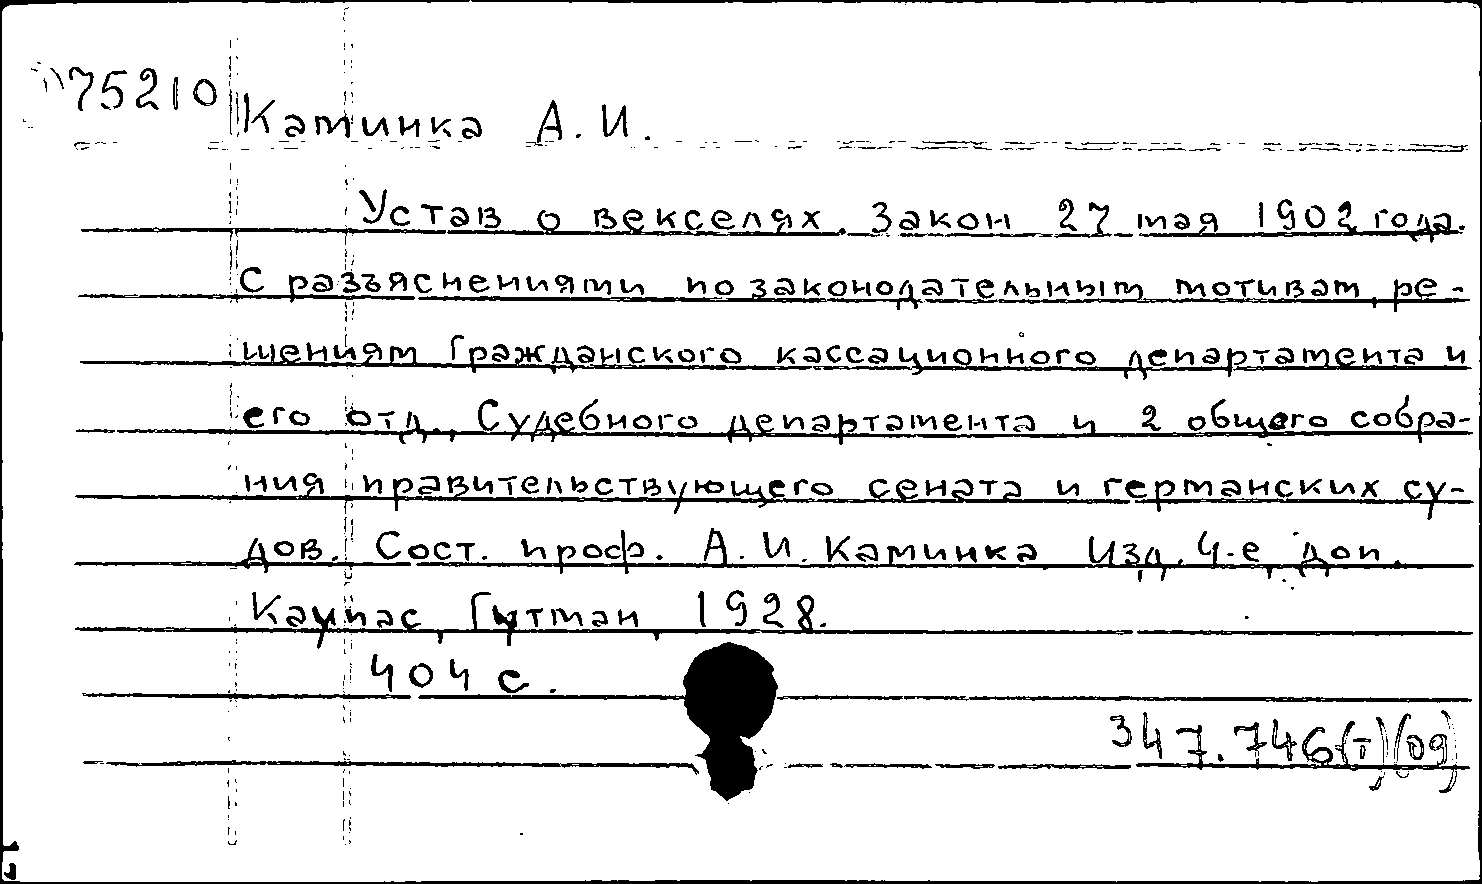 75210
Каминка А. И.
Устав о векселях. Закон 27 мая 1902 года.
С разъяснениями по законодательным мотивам, ре-
шениям Гражданского кассационного департамента и
его отд., Судебного департамента и 2 общего собра-
ния правительствующего сената и германских су-
дов. Сост. проф. А. И. Каминка. Изд. 4-е, доп.
Каунас, Гутман, 1928.
404 с.
347.746(I)(09)